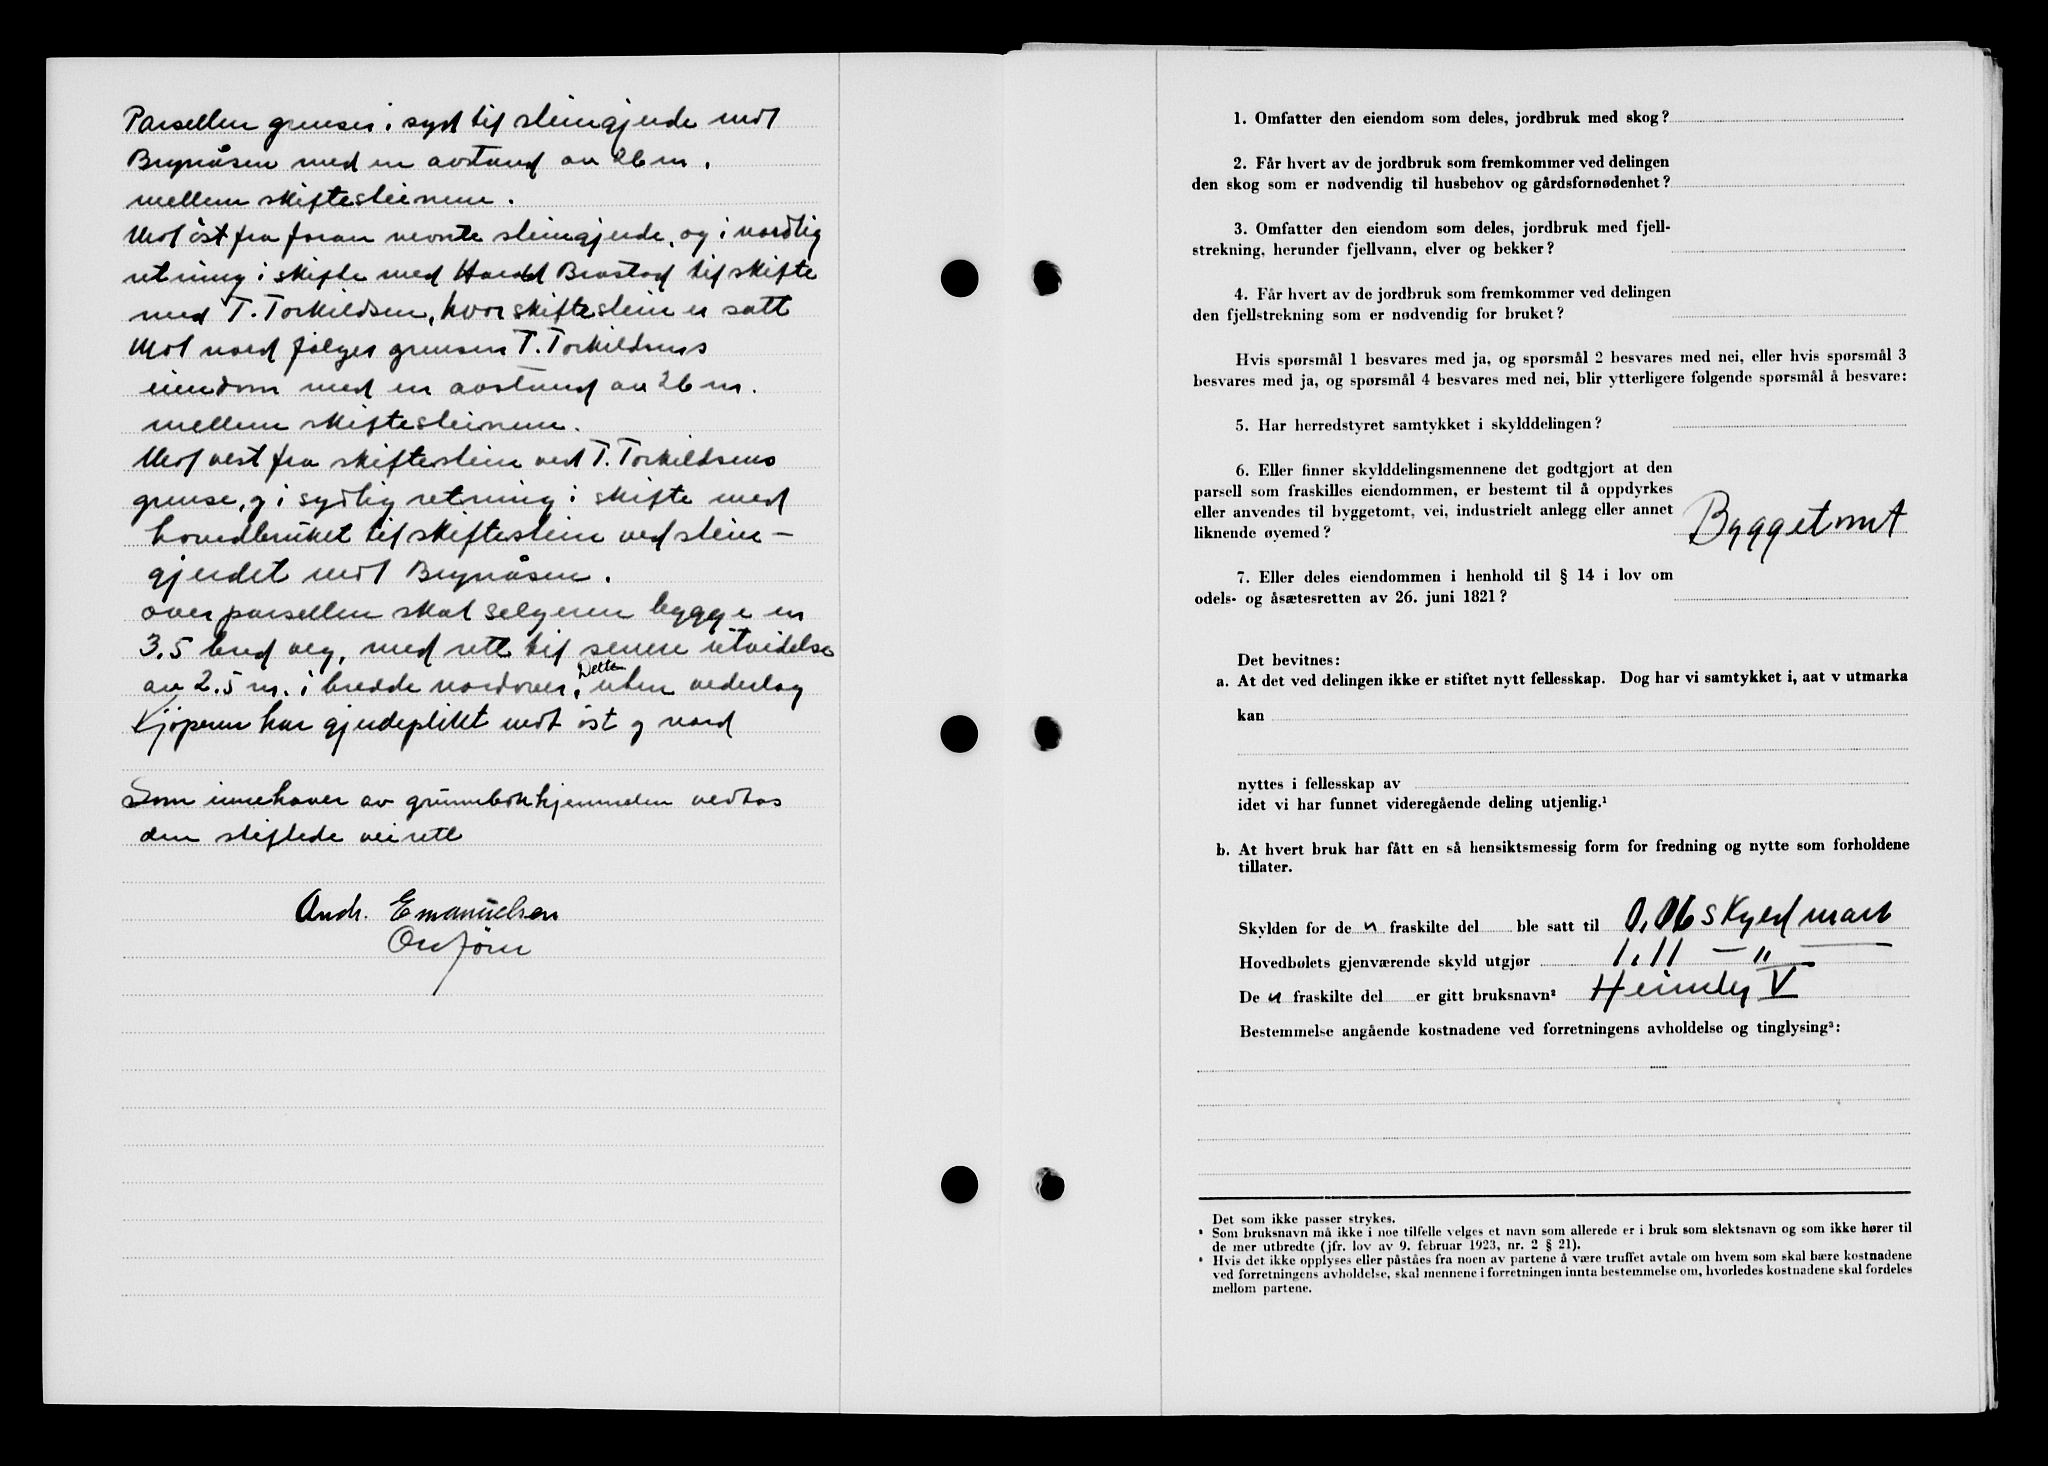 Parsellen grenser i syd til steingjerde mot
Brynåsen med en avstand av 26 m.
mellem skiftesteinene.
Mot öst fra foran nevnte steingjerde, og i nordlig
retning i skifte med Harald Brastad til skifte
med T. Torkildsen, hvor skiftestein er satt
Mot nord følger grensen T. Torkildsens
eiendom med en avstand av 26 m.
mellem skiftesteinene.
Mot vest fra skiftestein ved T. Torkildsens
grense, og i sydlig retning i skifte med
hovedbruket til skiftestein ved stein-
gjerdet mot Brynåsen.
over parsellen skal selgeren bygge en
3.5 bred veg, med rett til senere utvidelse
av 2.5 m. i bredde nordover, Dette uten vederlag
Kjöperen har gjerdeplikt mot öst og nord
Som innehaver av grunnbokhjemmelen vedtas
den stiftede veirett
Andr. Emanuelsen
1. Omfatter den eiendom som deles, jordbruk med skog?
2. Får hvert av de jordbruk som fremkommer ved delingen
den skog som er nødvendig til husbehov og gårdsfornødenhet?
3. Omfatter den eiendom som deles, jordbruk med fjell-
strekning, herunder fjellvann, elver og bekker?
4. Får hvert av de jordbruk som fremkommer ved delingen
den fjellstrekning som er nødvendig for bruket?
Hvis spørsmål 1 besvares med ja, og spørsmål 2 besvares med nei, eller hvis spørsmål 3
besvares med ja, og spørsmål 4 besvares med nei, blir ytterligere følgende spørsmål å besvare:
5. Har herredstyret samtykket i skylddelingen?
6. Eller finner skylddelingsmennene det godtgjort at den
parsell som fraskilles eiendommen, er bestemt til å oppdyrkes
eller anvendes til byggetomt, vei, industrielt anlegg eller annet
liknende øyemed? Byggetomt
7. Eller deles eiendommen i henhold til § 14 i lov om
odels- og åsætesretten av 26. juni 1821?
Det bevitnes:
a. At det ved delingen ikke er stiftet nytt fellesskap. Dog har vi samtykket i, aat v utmarka
kan
nyttes i fellesskap av
idet vi har funnet videregående deling utjenlig.¹
b. At hvert bruk har fått en så hensiktsmessig form for fredning og nytte som forholdene
tillater.
Skylden for de n fraskilte del ble satt til 0,06 skyldmark
Hovedbølets gjenværende skyld utgjør 1,11 — " —
De n fraskilte del er gitt bruksnavn² Heimly V
Bestemmelse angående kostnadene ved forretningens avholdelse og tinglysing³:
Det som ikke passer strykes.
² Som bruksnavn må ikke i noe tilfelle velges et navn som allerede er i bruk som slektsnavn og som ikke hører til
de mer utbredte (jfr. lov av 9. februar 1923, nr. 2 § 21).
³ Hvis det ikke opplyses eller påståes fra noen av partene å være truffet avtale om hvem som skal bære kostnadene
ved forretningens avholdelse, skal mennene i forretningen innta bestemmelse om, hvorledes kostnadene skal fordeles
mellom partene.